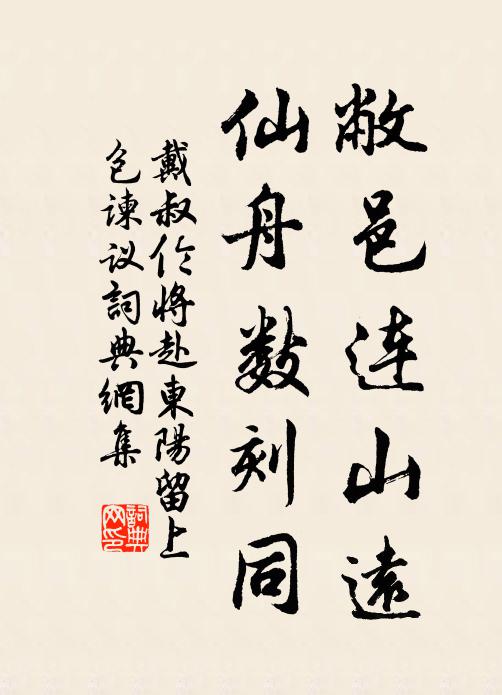 敝邑连山遠
仙舟数刻同
戴叔伦将赴東陽留上
包諫议詞典網集
詞典网印